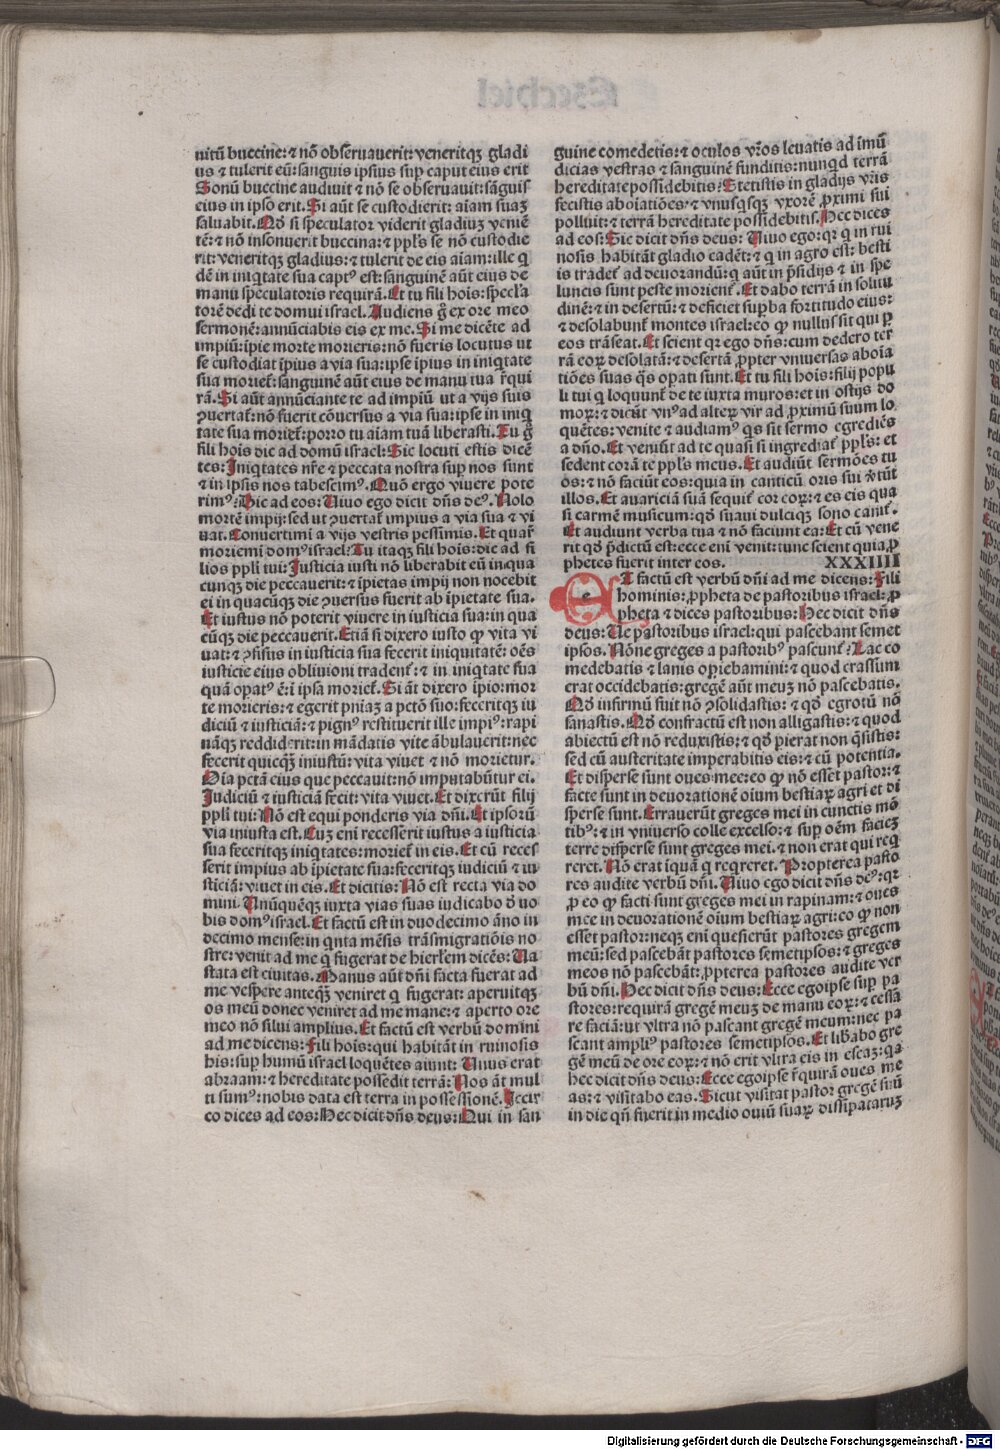 nitū buccine: ⁊ nō obseruauerit: veneritqꝫ gladi
us ⁊ tulerit eū: sanguis ipsius suꝑ caput eius erit
Sonū buccine audiuit ⁊ nō se obseruauit: sāguis
eius in ipso erit. Si aūt se custodierit: aīam suaꝫ
saluabit. Qꝺ si speculator viderit gladiuꝫ veniē
tē: ⁊ nō insonuerit buccina: ⁊ ppl's se nō custodie
rit: veneritqꝫ gladius: ⁊ tulerit de eis aīam: ille q
dē in iniqtate sua captꝰ est: sanguinē aūt eius de
manu speculatoris requirā. Et tu fili hoīs: specl'a
torē dedi te domui israel. Audiens g̊ ex ore meo
sermonē: annūciabis eis ex me. Si me dicēte ad
impiū: īpie morte morieris: nō fueris locutus ut
se custodiat īpius a via sua: ipse īpius in iniqtate
sua morieť: sanguinē aūt eius de manu tua r̄qui
rā. Si aūt annūciante te ad impiū ut a vijs suis
ꝯuertať: nō fuerit cōuersus a via sua: ipse in iniq
tate sua morieť: porro tu aīam tuā liberasti. Tu g̊
fili hoīs dic ad domū israel: Sic locuti estis dicē
tes: Iniqtates nr̄e ⁊ peccata nostra suꝑ nos sunt
⁊ in ipsis nos tabescimꝰ. Quō ergo viuere pote
rimꝰ? Dic ad eos: Viuo ego dicit dn̄s deꝰ. Nolo
mortē impij: sed ut ꝯuertať impius a via sua ⁊ vi
uat. Conuertimī a vijs vestris pessimis. Et quar̄
moriemī domꝰ israel? Tu itaqꝫ fili hoīs: dic ad fi
lios ppli tui: Iusticia iusti nō liberabit eū in qua
cunqꝫ die peccauerit: ⁊ īpietas impij non nocebit
ei in quacūqꝫ die ꝯuersus fuerit ab īpietate sua.
Et iustus nō poterit viuere in iusticia sua: in qua
cūqꝫ die peccauerit. Etiā si dixero iusto ꝙ vita vi
uat: ⁊ ꝯfisus in iusticia sua fecerit iniquitatē: oēs
iusticie eius obliuioni tradenť: ⁊ in iniqtate sua
quā oꝑatꝰ ē: ī ipsa morieť. Si aūt dixero īpio: mor
te morieris: ⁊ egerit pn̄iaꝫ a pctō suo: feceritqꝫ iu
diciū ⁊ iusticiā: ⁊ pignꝰ restituerit ille impiꝰ: rapi
nāqꝫ reddiderit: in mādatis vite ābulauerit: nec
fecerit quicqꝫ iniustū: vita viuet ⁊ nō morietur.
Oīa pctā eius que peccauit: nō imputabūtur ei.
Iudiciū ⁊ iusticiā fecit: vita viuet. Et dixerūt filij
ppli tui: Nō est equi ponderis via dn̄i. Et ipsorū
via iniusta est. Cuꝫ enī recesserit iustus a iusticia
sua feceritqꝫ iniqtates: morieť in eis. Et cū reces
serit impius ab īpietate sua: feceritqꝫ iudiciū ⁊ iu
sticiā: viuet in eis. Et dicitis: Nō est recta via do
mini. Vnūquēqꝫ iuxta vias suas iudicabo d̄ uo
bis domꝰ israel. Et factū est in duodecimo āno in
decimo mense: in qnta mēsis trāsmigratiōis no
stre: venit ad me q̄ fugerat de hierl'em dicēs: Va
stata est ciuitas. Manus aūt dn̄i facta fuerat ad
me vespere anteqꝫ veniret q̄ fugerat: aperuitqꝫ
os meū donec veniret ad me mane: ⁊ aperto ore
meo nō silui amplius. Et factū est verbū domini
ad me dicens: Fili hoīs: qui habitāt in ruinosis
his: suꝑ humū israel loquētes aiunt: Vnus erat
abraam: ⁊ hereditate possedit terrā: Nos āt mul
ti sumꝰ: nobis data est terra in possessionē. Iccir
co dices ad eos: Hec dicit dn̄s deus: Qui in san
guine comedetis: ⁊ oculos vr̄os leuatis ad īmū
dicias vestras ⁊ sanguinē funditis: nunqd terrā
hereditate possidebitis? Stetistis in gladijs vr̄is
fecistis aboīatiōes: ⁊ vnusqsqꝫ vxorē ꝓximi sui
polluit: ⁊ terrā hereditate possidebitis. Hec dices
ad eos: Sic dicit dn̄s deus: Viuo ego: qr q̄ in rui
nosis habitāt gladio cadēt: ⁊ q̄ in agro est: besti
is tradeť ad deuorandū: q̄ aūt in p̄sidijs ⁊ in spe
luncis sunt peste morienť. Et dabo terrā in solitu
dinē: ⁊ in desertū: ⁊ deficiet suꝑba fortitudo eius:
⁊ desolabunť montes israel: eo ꝙ nullus sit qui ꝑ
eos trāseat. Et scient qr ego dn̄s: cum dedero ter
rā eoꝝ desolatā: ⁊ desertā ꝓpter vniuersas aboīa
tiōes suas q̄s oꝑati sunt. Et tu fili hoīs: filij popu
li tui q̄ loquunť de te iuxta muros: et in ostijs do
moꝝ: ⁊ dicūt vnꝰ ad alteꝝ vir ad ꝓximū suum lo
quētes: venite ⁊ audiamꝰ qs sit sermo egrediēs
a dn̄o. Et veniūt ad te quasi si ingrediať ppl's: et
sedent corā te ppl's meus. Et audiūt sermōes tu
os: ⁊ nō faciūt eos: quia in canticū oris sui v̄tūt
illos. Et auariciā suā sequiť cor eoꝝ: ⁊ es eis qua
si carmē musicum: qꝺ suaui dulciqꝫ sono caniť.
Et audiunt verba tua ⁊ nō faciunt ea: Et cū vene
rit qꝺ p̄dictū est: ecce enī venit: tunc scient quia ꝓ
phetes fuerit inter eos. XXXIIII
ET factū est verbū dn̄i ad me dicens: Fili
hominis: ꝓpheta de pastoribus israel: ꝓ
pheta ⁊ dices pastoribus: Hec dicit dn̄s
deus: Ve pastoribus israel: qui pascebant semet
ipsos. Nōne greges a pastoribꝰ pascunť? Lac co
medebatis ⁊ lanis oꝑiebamini: ⁊ quod crassum
erat occidebatis: gregē aūt meuꝫ nō pascebatis.
Qꝺ infirmū fuit nō ꝯsolidastis: ⁊ qꝺ egrotū nō
sanastis. Qꝺ confractū est non alligastis: ⁊ quod
abiectū est nō reduxistis: ⁊ qꝺ ꝑierat non q̄sistis:
sed cū austeritate imperabitis eis: ⁊ cū potentia.
Et disperse sunt oues mee: eo ꝙ nō esset pastor: ⁊
facte sunt in deuorationē oīum bestiaꝝ agri et di
sperse sunt. Errauerūt greges mei in cunctis mō
tibꝰ: ⁊ in vniuerso colle excelso: ⁊ suꝑ oēm facieꝫ
terre disperse sunt greges mei. ⁊ non erat qui req
reret. Nō erat īquā q̄ reqreret. Propterea pasto
res audite verbū dn̄i. Viuo ego dicit dn̄s deꝰ: qr
ꝓ eo ꝙ facti sunt greges mei in rapinam: ⁊ oues
mee in deuorationē oīum bestiaꝝ agri: eo ꝙ non
esset pastor: neqꝫ enī quesierūt pastores gregem
meū: sed pascebāt pastores semetipsos: ⁊ greges
meos nō pascebāt: ꝓpterea pastores audite ver
bū dn̄i. Hec dicit dn̄s deus: Ecce egoipse suꝑ pa
stores: requirā gregē meuꝫ de manu eoꝝ: ⁊ cessa
re faciā: ut vltra nō pascant gregē meum: nec pa
scant ampliꝰ pastores semetipsos. Et lib̄abo gre
gē meū de ore eoꝝ: ⁊ nō erit vltra eis in escaꝫ: qa
hec dicit dn̄s deus: Ecce egoipse r̄quirā oues me
as: ⁊ visitabo eas. Sicut visitat pastor gregē suū
in die qn̄ fuerit in medio ouiū suaꝝ dissipataruꝫ
Digitalisierung gefördert durch die Deutsche Forschungsgemeinschaft - DFG